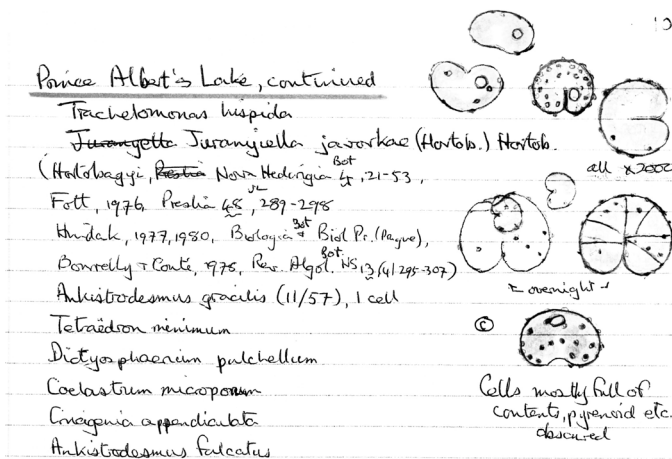 Prince Albert's Lake, continued
Trachelomonas hispida
Juranyiella javorkae (Hortob.) Hortob.
(Hortobagyi, Nova Hedwigia 4, 21-53,
Fott, 1976, Preslia 48, 289-298
Hindak, 1977, 1980, Biologia Biol Pr. (Prague),
Bourrelly + Couté, 1976, Rev. Algol. NS 13 (4) 295-307)
Ankistrodesmus gracilis (11/57), 1 cell
Tetraëdron minimum
Dictyosphaerium pulchellum
Coelastrum microporum
Crucigenia appendiculata
Ankistrodesmus falcatus
all x2000
← overnight →
©
Cells mostly full of
contents, pyrenoid etc.
obscured